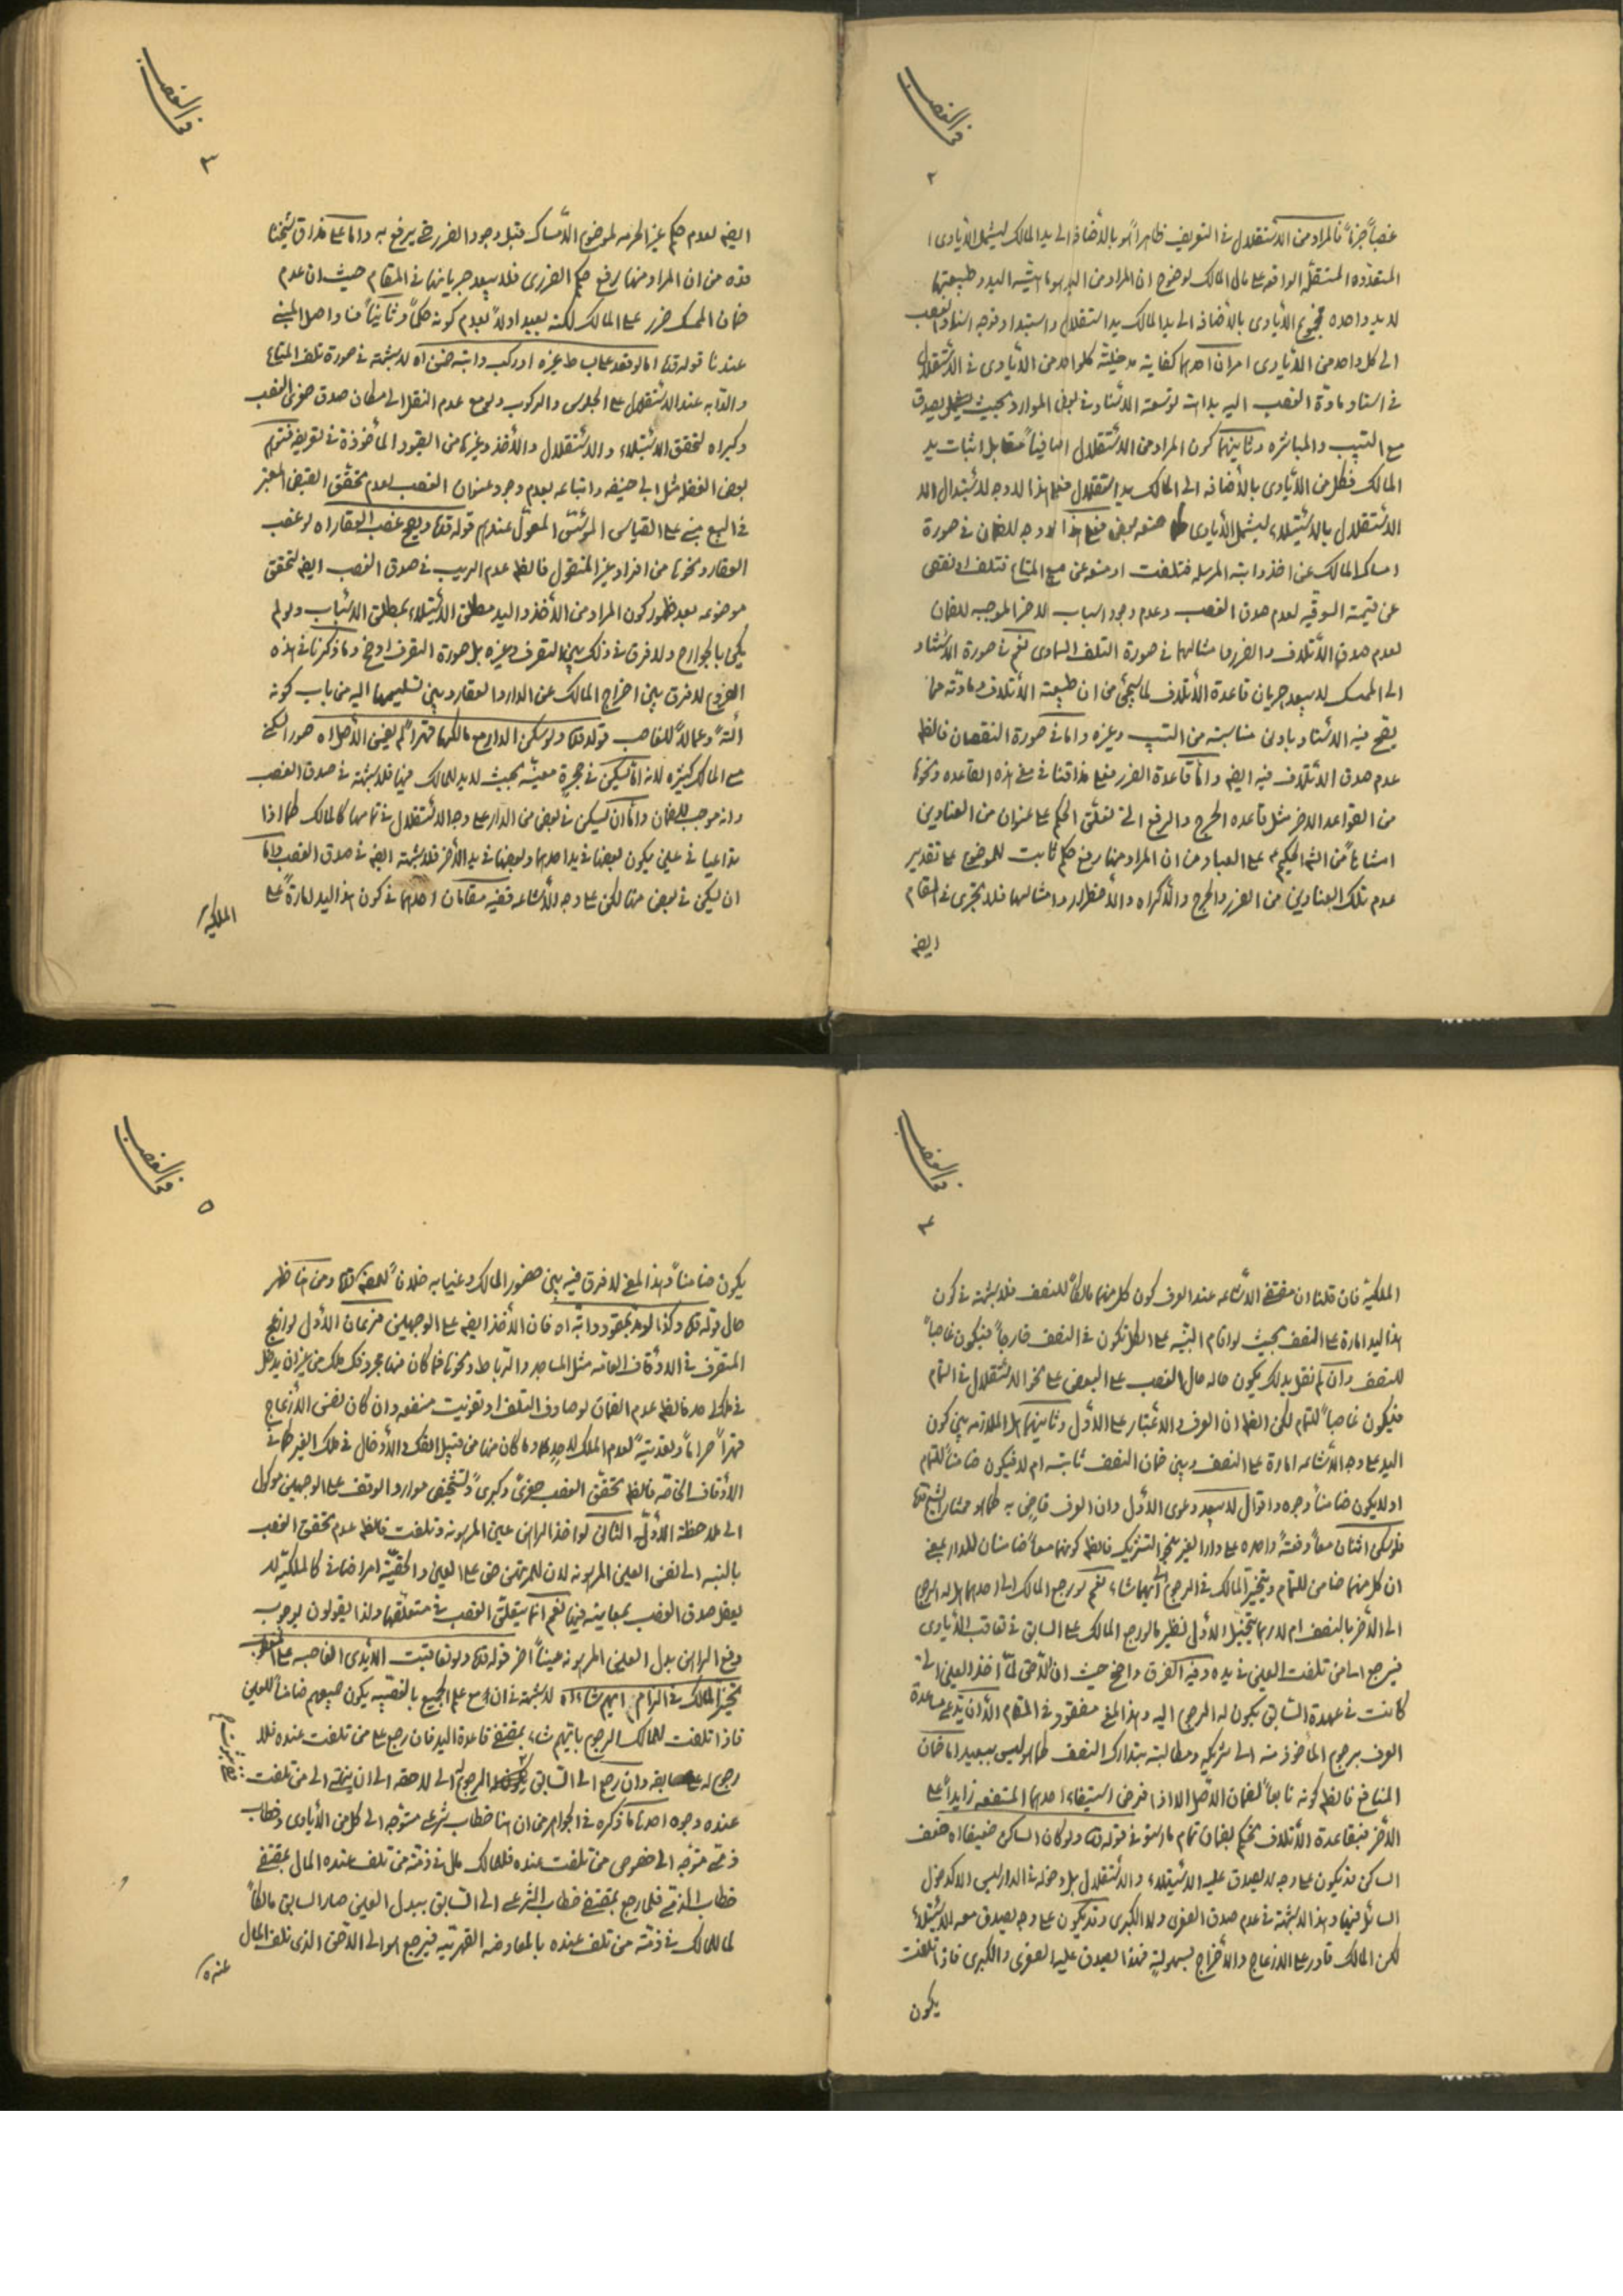 في الغصب
٢
غصباً جزماً فالمراد من الاستقلال في التعريف ظاهراً هو بالأضافة الى يد المالك ليشمل الأيادي
المتعدده المستقلّه الواقعه على مال المالك لوضوح ان المراد من اليد هو ماهيّة اليد وطبيعتها
لا يد واحده فمجموع الأيادي بالأضافه الى يد المالك يد استقلال واستبداد وتوجه اسناد الغصب
الى كل واحد من الأيادي امران احدهما كفاية مدخليّة كلواحد من الأيادي في الاستقلال
في اسناد مادّة الغصب اليه بداهة توسعة الاسناد في بعض الموارد بحيث يصدق
مع التسبيب والمباشره وثانيهما كون المراد من الاستقلال اضافياً مقابل اثبات يد
المالك فكل من الأيادي بالأضافه الى المالك يد استقلال فعلى هذا لا وجه لاستبدال
الاستقلال بالاستيلاء ليشمل الأيادي منعه بعض فعلى هذا لا وجه للضمان في صورة
امساك المالك عن اخذ دابته المرسله فتلفت او منعه عن بيع المتاع فتلف او نقص
عن قيمته السوقيه لعدم صدق الغصب وعدم وجود اسباب الاخر الموجبه للضمان
لعدم صدق الأتلاف والضرر وامثالهما في صورة التلف السماوى نعم في صورة الاستناد
الى الممسك لا يبعد جريان قاعدة الأتلاف لما سيجئ من ان طبيعة الأتلاف ومادّته مما
يصح فيه الاسناد بادنى مناسبته من التسبيب وغيره واما في صورة النقصان فالظ
عدم صدق الاتلاف فيه ايضه واما قاعدة الضرر فعلى مذاقنا في معنى هذه القاعده ونحوها
من القواعد الاخر مثل قاعده الحرج والرفع التي تعلّق الحكم على عنوان من العناوين
امتناناً من الله الحكيم على العباد من ان المراد منها رفع حكم ثابت للموضوع على تقدير
عدم تلك العناوين من الضرر والحرج والأكراه والأضطرار وامثالهما فلا تجرى في المقام
ايضه
في الغصب
٣
ايضه لعدم حكم غير الحرمه لموضوع الامساك قبل وجود الضرر حتى يرفع به واما على مذاق شيخنا
قده من ان المراد منها رفع حكم الضررى فلا يبعد جريانها في المقام حيث ان عدم
ضمان الممسك ضرر على المالك لكنه بعيد اولاً لعدم كونه حكماً وثانياً فساد اصل المبنى
عندنا قوله قده اما لو قعد على بساط غيره او ركب دابته ضمن اه لا شبهة في صورة تلف المتاع
والدّابه عند الاستقلال على الجلوس والركوب ولو مع عدم النقل الى مكان صدق صغرى الغصب
وكبراه لتحقق الاستيلاء والاستقلال والأخذ وغيرها من القيود المأخوذة في تعريفه فتوهّم
بعض الفضلا مثل ابى حنيفه واتباعه بعدم وجود عنوان الغصب لعدم تحقّق القبض المعتبر
في البيع مبنى على القياس المعوّل عندهم قوله قده ويصح غصب العقار اه لو غصب
العقار ونحوها من افراد غير المنقول فالظ عدم الريب في صدق الغصب ايضه لتحقق
موضوعه بعد ظهور كون المراد من الأخذ واليد مطلق الاستيلاء بمطلق الاسباب ولو لم
يكن بالجوارح ولا فرق في ذلك بين التصرف وغيره بل صورة التصرف اوضح وما ذكرنا في هذه
الفروع لا فرق بين اخراج المالك عن الدار والعقار وبين تسليمهما اليه من باب كونه
آلةً وعمالاً للغاصب قوله قده ولو سكن الدار مع مالكها قهراً لم يضمن الأصل اه صور السكنى
مع المالك كثيره لأنه امّا يسكن في حجرة معيّنه بحيث لا يد للمالك فيها فلا شبهة في صدق الغصب
وانه موجب للضمان وامّا ان يسكن في بعض من الدار على وجه الاستقلال في تمامها كالمالك كما اذا
تداعيا في عين يكون بعضها في يد احدهما وبعضها في يد الأخر فلا شبهة ايضه في صدق الغصب وامّا
ان يسكن في بعض منها لكن على وجه الأشاعه ففيه مقامان احدهما في كون هذا اليد امارةً على
الملكيّة
في الغصب
٤
الملكيّة فان قلنا ان مقتضى الاشاعه عند العرف كون كل منهما مالكاً للنصف فلا شبهة في كون
هذا اليد امارة على النصف بحيث لو اقام البيّنه على الكل تكون في النصف خارجاً فيكون غاصباً
للنصف وان لم نقل بذلك يكون حاله حال الغصب على البعض على نحو الاستقلال في التمام
فيكون غاصباً للتمام لكن الظ ان العرف والاعتبار على الأوّل وثانيهما هل الملازمه بين كون
اليد على وجه الأشاعه امارة على النصف وبين ضمان النصف ثابتة ام لا فيكون ضامناً للتمام
او لا يكون ضامناً وجوه واقوال لا يبعد دعوى الأوّل وان العرف قاض به كما هو مختار الشيخ قده
فلو سكن اثنان معاً دفعةً واحده على دار الغير بنحو التشريك فالظ كونهما معاً ضامنان للدار بمعنى
ان كل منهما ضامن للتمام ويتخيّر المالك في الرجوع الى ايهما شاء نعم لو رجع المالك الى احدهما هل له الرجوع
الى الأخر بالنصف ام لا ربما يتخيّل الأوّل نظير ما لو رجع المالك على السابق في تعاقب الأيادى
فيرجع اسامن تلفت العين في يده وفيه الفرق واضح حيث ان اللّاحق لمّا اخذ العين التى
كانت في عهدة السّابق يكون له الرجوع اليه وهذا المعنى مفقود في المقام الّا ان يدّعى مساعدة
العرف برجوع المأخوذ منه الى شريكه ومطالبته بتدارك النصف كما هو ليس ببعيد اما ضمان
المنافع فالظ كونه تابعاً لضمان الاصل الا اذا فرض استيفاء احدهما المنفعه زايداً على
الأخر فبقاعدة الأتلاف نحكم بضمان تمام ما استوفى قوله قده ولو كان الساكن ضعيفاً اه ضعف
الساكن قد يكون على وجه لا يصدق عليه الاستيلاء والاستقلال بل دخوله في الدار ليس الا كدخول
السائل فيها وهذا لا شبهة في عدم صدق الصغرى ولا الكبرى وقد يكون على وجه يصدق معه الاستيلاء
لكن المالك قادر على الازعاج والأخراج بسهولةٍ فهذا يصدق عليه الصغرى والكبرى فاذا تلفت
يكون
في الغصب
٥
يكون ضامناً وهذا المعنى لا فرق فيه بين حضور المالك وغيابه خلافاً للمص قده ومن هنا ظهر
حال قوله قده وكذا لو مدّ بمقود دابّة اه فان الأخذ ايضه على الوجهين فرعان الأوّل لو ازعج
المتصرّف في الاوقاف العامه مثل المساجد والرّباط ونحوها فما كان منها مجرد فك ملك من غير ان يدخل
في ملك احد فالظ عدم الضمان لو صادف التلف او تفويت منفعه وان كان نفس الأزعاج
قهراً حراماً ولعدميّة لعدم الملك لاحد وما كان منها من قبيل الفك والأدخال في ملك الغير كما في
الأوقاف الخاصّه فالظ تحقّق الغصب صغرىً وكبرىً وتشخيص موارد الوقف على الوجهين موكول
الى ملاحظة الأدلّة الثانى لو اخذ الراهن عين المرهونه وتلفت فالظ عدم تحقق الغصب
بالنسبه الى نفس العين المرهونه لان للمرتهن حق على العين والحقيّة امر اضافى كالملكيّة لا
يعقل صدق الغصب بمعاينة فيها نعم انما يتعلّق الغصب في متعلّقها ولذا يقولون بوجوب
دفع الراهن بدل العين المرهونه عيناً آخر قوله قده ولو تعاقبت الأيدى الغاصبه على المغصوب
تخيّر المالك في الزام ايهم شاء اه لا شبهة في ان مع علم الجميع بالغصبيه يكون جميعهم ضامناً للعين
فاذا تلفت للمالك الرجوع بايّهم شاء بمقتضى قاعدة اليد فان رجع على من تلفت عنده فلا
رجوع له على سابقه وان رجع الى السّابق يكون له الرجوع الى لاحقه الى ان ينتهى الى من تلفت
عنده وجوه احدها ما ذكره في الجواهر من ان هنا خطاب شرعى متوّجه الى كل من الأيادى وخطاب
ذمّى متوّجه الى خصوص من تلفت عنده فللمالك مال في ذمّته من تلف عنده المال بمقتضى
خطاب الذمّى فلما رجع بمقتضى خطاب الشرعى الى السّابق ببدل العين صار السابق مالكاً
لما للمالك في ذمّة من تلف عنده بالمعاوضه القهريّه فيرجع هو الى اللاحق الذى تلف المال
عنده